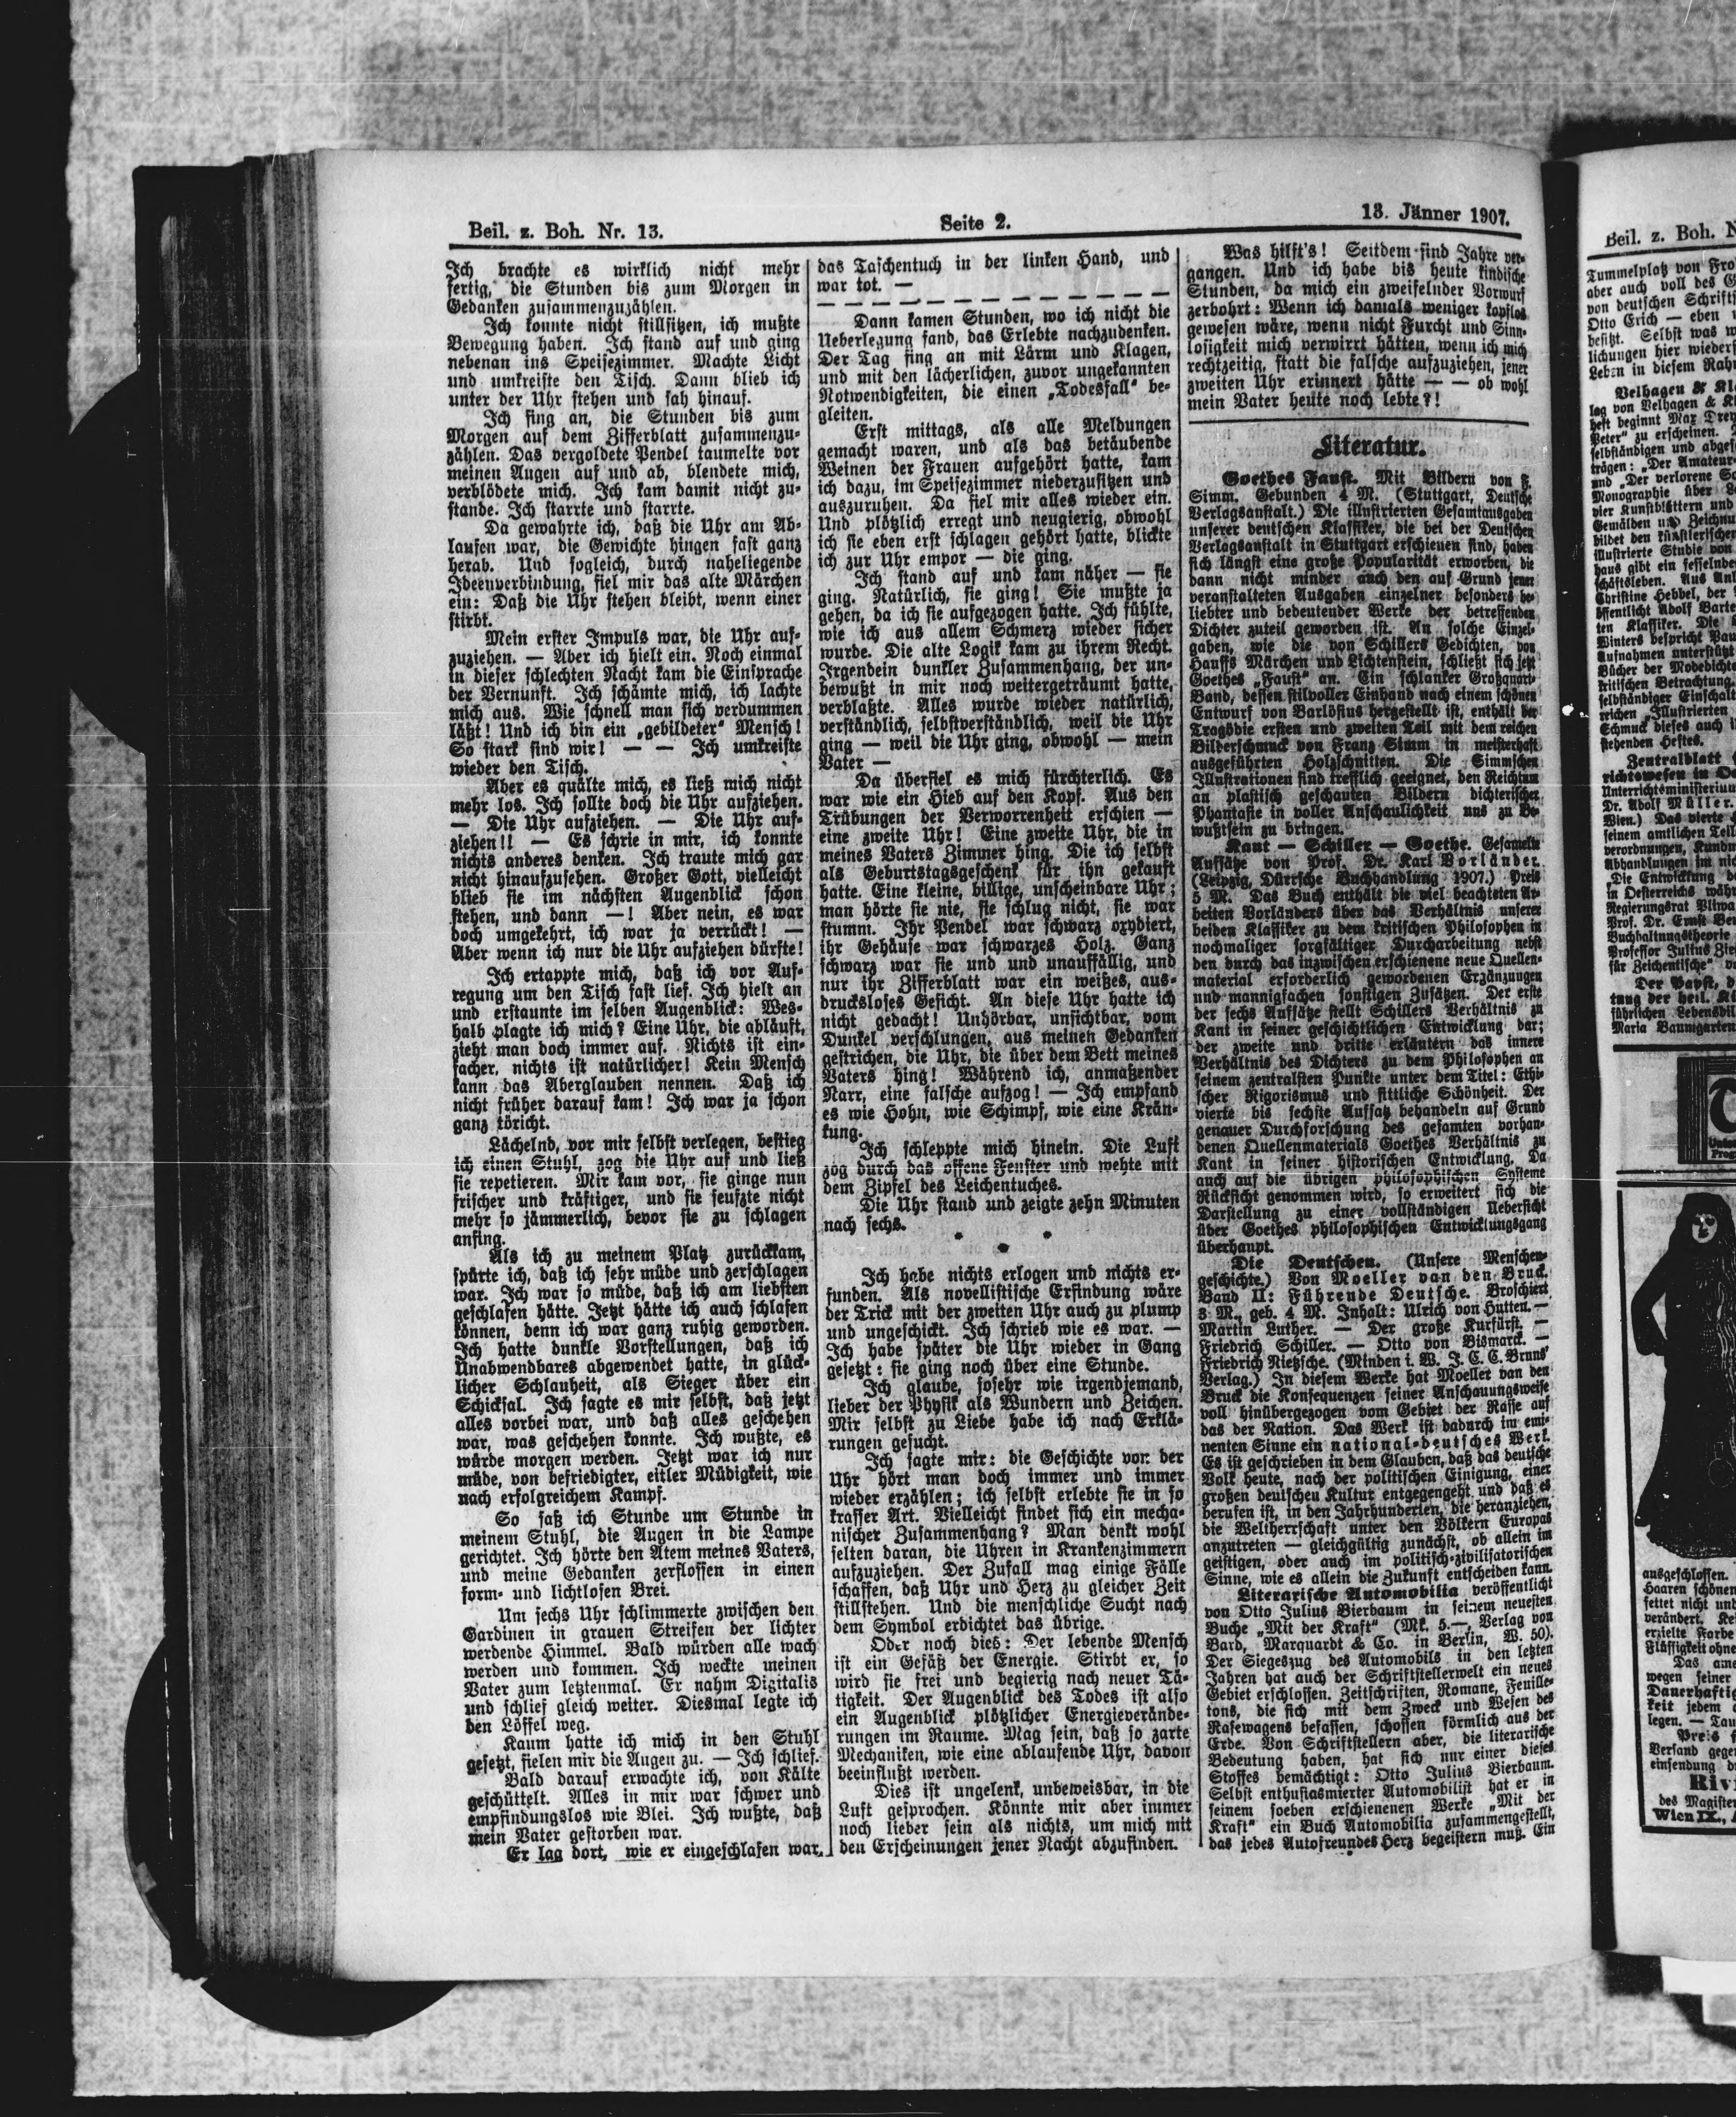 Beil. z. Boh. Nr. 13.
Seite 2.
13. Jänner 1907.
Ich brachte es wirklich nicht mehr
fertig, die Stunden bis zum Morgen in
Gedanken zusammenzuzählen.
Ich konnte nicht stillsitzen, ich mußte
Bewegung haben. Ich stand auf und ging
nebenan ins Speisezimmer. Machte Licht
und umkreiste den Tisch. Dann blieb ich
unter der Uhr stehen und sah hinauf.
Ich fing an, die Stunden bis zum
Morgen auf dem Zifferblatt zusammenzu-
zählen. Das vergoldete Pendel taumelte vor
meinen Augen auf und ab, blendete mich,
verblödete mich. Ich kam damit nicht zu-
stande. Ich starrte und starrte.
Da gewahrte ich, daß die Uhr am Ab-
laufen war, die Gewichte hingen fast ganz
herab. Und sogleich, durch naheliegende
Ideenverbindung, fiel mir das alte Märchen
ein: Daß die Uhr stehen bleibt, wenn einer
stirbt.
Mein erster Impuls war, die Uhr auf-
zuziehen. — Aber ich hielt ein. Noch einmal
in dieser schlechten Nacht kam die Einsprache
der Vernunft. Ich schämte mich, ich lachte
mich aus. Wie schnell man sich verdummen
läßt! Und ich bin ein „gebildeter“ Mensch!
So stark sind wir! — — Ich umkreiste
wieder den Tisch.
Aber es quälte mich, es ließ mich nicht
mehr los. Ich sollte doch die Uhr aufziehen.
— Die Uhr aufziehen. — Die Uhr auf-
ziehen!! — Es schrie in mir, ich konnte
nichts anderes denken. Ich traute mich gar
nicht hinaufzusehen. Großer Gott, vielleicht
blieb sie im nächsten Augenblick schon
stehen, und dann —! Aber nein, es war
doch umgekehrt, ich war ja verrückt! —
Aber wenn ich nur die Uhr aufziehen dürfte!
Ich ertappte mich, daß ich vor Auf-
regung um den Tisch fast lief. Ich hielt an
und erstaunte im selben Augenblick: Wes-
halb plagte ich mich? Eine Uhr, die abläuft,
zieht man doch immer auf. Nichts ist ein-
facher, nichts ist natürlicher! Kein Mensch
kann das Aberglauben nennen. Daß ich
nicht früher darauf kam! Ich war ja schon
ganz töricht.
Lächelnd, vor mir selbst verlegen, bestieg
ich einen Stuhl, zog die Uhr auf und ließ
sie repetieren. Mir kam vor, sie ginge nun
frischer und kräftiger, und sie seufzte nicht
mehr so jämmerlich, bevor sie zu schlagen
anfing.
Als ich zu meinem Platz zurückkam,
spürte ich, daß ich sehr müde und zerschlagen
war. Ich war so müde, daß ich am liebsten
geschlafen hätte. Jetzt hätte ich auch schlafen
können, denn ich war ganz ruhig geworden.
Ich hatte dunkle Vorstellungen, daß ich
Unabwendbares abgewendet hatte, in glück-
licher Schlauheit, als Sieger über ein
Schicksal. Ich sagte es mir selbst, daß jetzt
alles vorbei war, und daß alles geschehen
war, was geschehen konnte. Ich wußte, es
würde morgen werden. Jetzt war ich nur
müde, von befriedigter, eitler Müdigkeit, wie
nach erfolgreichem Kampf.
So saß ich Stunde um Stunde in
meinem Stuhl, die Augen in die Lampe
gerichtet. Ich hörte den Atem meines Vaters,
und meine Gedanken zerflossen in einen
form- und lichtlosen Brei.
Um sechs Uhr schlimmerte zwischen den
Gardinen in grauen Streifen der lichter
werdende Himmel. Bald würden alle wach
werden und kommen. Ich weckte meinen
Vater zum letztenmal. Er nahm Digitalis
und schlief gleich weiter. Diesmal legte ich
den Löffel weg.
Kaum hatte ich mich in den Stuhl
gesetzt, fielen mir die Augen zu. — Ich schlief.
Bald darauf erwachte ich, von Kälte
geschüttelt. Alles in mir war schwer und
empfindungslos wie Blei. Ich wußte, daß
mein Vater gestorben war.
Er lag dort, wie er eingeschlafen war,
das Taschentuch in der linken Hand, und
war tot. —
— — — — — — — — — — — — — —
Dann kamen Stunden, wo ich nicht die
Ueberlegung fand, das Erlebte nachzudenken.
Der Tag fing an mit Lärm und Klagen,
und mit den lächerlichen, zuvor ungekannten
Notwendigkeiten, die einen „Todesfall“ be-
gleiten.
Erst mittags, als alle Meldungen
gemacht waren, und als das betäubende
Weinen der Frauen aufgehört hatte, kam
ich dazu, im Speisezimmer niederzusitzen und
auszuruhen. Da fiel mir alles wieder ein.
Und plötzlich erregt und neugierig, obwohl
ich sie eben erst schlagen gehört hatte, blickte
ich zur Uhr empor — die ging.
Ich stand auf und kam näher — sie
ging. Natürlich, sie ging! Sie mußte ja
gehen, da ich sie aufgezogen hatte. Ich fühlte,
wie ich aus allem Schmerz wieder sicher
wurde. Die alte Logik kam zu ihrem Recht.
Irgendein dunkler Zusammenhang, der un-
bewußt in mir noch weitergeträumt hatte,
verblaßte. Alles wurde wieder natürlich,
verständlich, selbstverständlich, weil die Uhr
ging — weil die Uhr ging, obwohl — mein
Vater —
Da überfiel es mich fürchterlich. Es
war wie ein Hieb auf den Kopf. Aus den
Trübungen der Verworrenheit erschien —
eine zweite Uhr! Eine zweite Uhr, die in
meines Vaters Zimmer hing. Die ich selbst
als Geburtstagsgeschenk für ihn gekauft
hatte. Eine kleine, billige, unscheinbare Uhr;
man hörte sie nie, sie schlug nicht, sie war
stumm. Ihr Pendel war schwarz oxydiert,
ihr Gehäuse war schwarzes Holz. Ganz
schwarz war sie und und unauffällig, und
nur ihr Zifferblatt war ein weißes, aus-
drucksloses Gesicht. An diese Uhr hatte ich
nicht gedacht! Unhörbar, unsichtbar, vom
Dunkel verschlungen, aus meinen Gedanken
gestrichen, die Uhr, die über dem Bett meines
Vaters hing! Während ich, anmaßender
Narr, eine falsche aufzog! — Ich empfand
es wie Hohn, wie Schimpf, wie eine Krän-
kung.
Ich schleppte mich hinein. Die Luft
zog durch das offene Fenster und wehte mit
dem Zipfel des Leichentuches.
Die Uhr stand und zeigte zehn Minuten
nach sechs.
* * *
Ich habe nichts erlogen und nichts er-
funden. Als novellistische Erfindung wäre
der Trick mit der zweiten Uhr auch zu plump
und ungeschickt. Ich schrieb wie es war. —
Ich habe später die Uhr wieder in Gang
gesetzt: sie ging noch über eine Stunde.
Ich glaube, sosehr wie irgendjemand,
lieber der Physik als Wundern und Zeichen.
Mir selbst zu Liebe habe ich nach Erklä-
rungen gesucht.
Ich sagte mir: die Geschichte von der
Uhr hört man doch immer und immer
wieder erzählen; ich selbst erlebte sie in so
krasser Art. Vielleicht findet sich ein mecha-
nischer Zusammenhang? Man denkt wohl
selten daran, die Uhren in Krankenzimmern
aufzuziehen. Der Zufall mag einige Fälle
schaffen, daß Uhr und Herz zu gleicher Zeit
stillstehen. Und die menschliche Sucht nach
dem Symbol erdichtet das übrige.
Oder noch dies: Der lebende Mensch
ist ein Gefäß der Energie. Stirbt er, so
wird sie frei und begierig nach neuer Tä-
tigkeit. Der Augenblick des Todes ist also
ein Augenblick plötzlicher Energieverände-
rungen im Raume. Mag sein, daß so zarte
Mechaniken, wie eine ablaufende Uhr, davon
beeinflußt werden.
Dies ist ungelenk, unbeweisbar, in die
Luft gesprochen. Könnte mir aber immer
noch lieber sein als nichts, um mich mit
den Erscheinungen jener Nacht abzufinden.
Was hilft's! Seitdem sind Jahre ver-
gangen. Und ich habe bis heute kindische
Stunden, da mich ein zweifelnder Vorwurf
zerbohrt: Wenn ich damals weniger kopflos
gewesen wäre, wenn nicht Furcht und Sinn-
losigkeit mich verwirrt hätten, wenn ich mich
rechtzeitig, statt die falsche aufzuziehen, jener
zweiten Uhr erinnert hätte — — ob wohl
mein Vater heute noch lebte?!
Literatur.
Goethes Faust. Mit Bildern von F.
Simm. Gebunden 4 M. (Stuttgart, Deutsche
Verlagsanstalt.) Die illustrierten Gesamtausgaben
unserer deutschen Klassiker, die bei der Deutschen
Verlagsanstalt in Stuttgart erschienen sind, haben
sich längst eine große Popularität erworben, die
dann nicht minder auch den auf Grund jener
veranstalteten Ausgaben einzelner besonders be-
liebter und bedeutender Werke der betreffenden
Dichter zuteil geworden ist. An solche Einzel-
gaben, wie die von Schillers Gedichten, von
Hauffs Märchen und Lichtenstein, schließt sich jetzt
Goethes „Faust“ an. Ein schlanker Großquart-
Band, dessen stilvoller Einband nach einem schönen
Entwurf von Barlösius hergestellt ist, enthält der
Tragödie ersten und zweiten Teil mit dem reichen
Bilderschmuck von Franz Simm in meisterhaft
ausgeführten Holzschnitten. Die Simmschen
Illustrationen sind trefflich geeignet, den Reichtum
an plastisch geschauten Bildern dichterischer
Phantasie in voller Anschaulichkeit uns zu Be-
wußtsein zu bringen.
Kant — Schiller — Goethe. Gesammelte
Aufsätze von Prof. Dr. Karl Vorländer.
(Leipzig, Dürrsche Buchhandlung 1907.) Preis
5 M. Das Buch enthält die viel beachteten Ar-
beiten Vorländers über das Verhältnis unserer
beiden Klassiker zu dem kritischen Philosophen in
nochmaliger sorgfältiger Durcharbeitung nebst
den durch das inzwischen erschienene neue Quellen-
material erforderlich gewordenen Erzänzungen
und mannigfachen sonstigen Zusätzen. Der erste
der sechs Aufsätze stellt Schillers Verhältnis zu
Kant in seiner geschichtlichen Entwicklung dar;
der zweite und dritte erläutern das innere
Verhältnis des Dichters zu dem Philosophen an
seinem zentralsten Punkte unter dem Titel: Ethi-
scher Rigorismus und sittliche Schönheit. Der
vierte bis sechste Aufsatz behandeln auf Grund
genauer Durchforschung des gesamten vorhan-
denen Quellenmaterials Goethes Verhältnis zu
Kant in seiner historischen Entwicklung. Da
auch auf die übrigen philosophischen Systeme
Rücksicht genommen wird, so erweitert sich die
Darstellung zu einer vollständigen Uebersicht
über Goethes philosophischen Entwicklungsgang
überhaupt.
Die Deutschen. (Unsere Menschen-
geschichte.) Von Moeller van den Bruck.
Band II: Führende Deutsche. Broschiert
3 M., geb. 4 M. Inhalt: Ulrich von Hutten. —
Martin Luther. — Der große Kurfürst. —
Friedrich Schiller. — Otto von Bismarck. —
Friedrich Nietzsche. (Minden i. W. J. C. C. Bruns'
Verlag.) In diesem Werke hat Moeller van den
Bruck die Konsequenzen seiner Anschauungsweise
voll hinübergezogen vom Gebiet der Rasse auf
das der Nation. Das Werk ist dadurch im emi-
nenten Sinne ein national-deutsches Werk.
Es ist geschrieben in dem Glauben, daß das deutsche
Volk heute, nach der politischen Einigung, einer
großen deutschen Kultur entgegengeht und daß es
berufen ist, in den Jahrhunderten, die heranziehen,
die Weltherrschaft unter den Völkern Europas
anzutreten — gleichgültig zunächst, ob allein im
geistigen, oder auch im politisch-zivilisatorischen
Sinne, wie es allein die Zukunft entscheiden kann.
Literarische Automobilia veröffentlicht
von Otto Julius Bierbaum in seinem neuesten
Buche „Mit der Kraft“ (Mk. 5.—, Verlag von
Bard, Marquardt & Co. in Berlin, W. 50).
Der Siegeszug des Automobils in den letzten
Jahren hat auch der Schriftstellerwelt ein neues
Gebiet erschlossen. Zeitschriften, Romane, Feuille-
tons, die sich mit dem Zweck und Wesen des
Rasewagens befassen, schossen förmlich aus der
Erde. Von Schriftstellern aber, die literarische
Bedeutung haben, hat sich nur einer dieses
Stoffes bemächtigt: Otto Julius Bierbaum.
Selbst enthusiasmierter Automobilist hat er in
seinem soeben erschienenen Werke „Mit der
Kraft“ ein Buch Automobilia zusammengestellt,
das jedes Autofreundes Herz begeistern muß. Ein
Beil. z. Boh. N
Tummelplatz von Fro
aber auch voll des G
von deutschen Schrifts
Otto Erich — eben
besitzt. Selbst was
lichungen hier wieder
Leben in diesem Rah
Velhagen & Kl
lag von Velhagen & Kl
heft beginnt Max Drey
Peter“ zu erscheinen.
selbständigen und abges
trägen: „Der Amateur
und „Der verlorene S
Monographie über
vier Kunstblättern und
Gemälden und Zeichnu
bildet den künstlerischen
illustrierte Studie von
haus gibt ein fesselndes
schäftsleben. Aus An
Christine Hebbel, der
öffentlicht Adolf Barte
ten Klassiker. Die
Winters bespricht Pau
Aufnahmen unterstützt
Bücher der Modedichte
kritischen Betrachtung.
selbständiger Einschalt
reichen „Illustrierten
Schmuck dieses auch i
stehenden Heftes.
Zentralblatt
richtswesen in Oe
Unterrichtsministerium
Dr. Adolf Müller.
Wien.) Das vierte
seinem amtlichen Teil
verordnungen, Kundm
Abhandlungen im nic
Die Entwicklung de
in Oesterreichs währ
Regierungsrat Pliwa
Prof. Dr. Ernst
Buchhaltungstheorie
Professor Julius Zie
für Zeichentische“
Der Papst, d
tung der heil. K
führlichen Lebensbil
Maria Baumgarten
ausgeschlossen.
Haaren schönen
fettet nicht und
verändert.
erzielte Farbe
Flüssigkeit ohne
Das ame
wegen seiner
Dauerhaftig
keit jedem
legen. — Tau
Preis
Versand gege
einsendung
Riv
des Magister
Wien IX.,